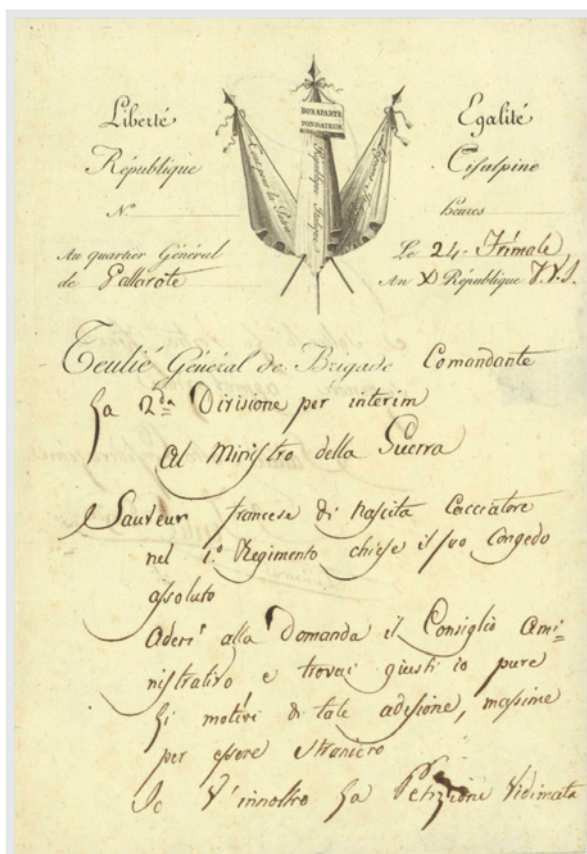 Liberté
Egalité
BONAPARTE
FONDATEUR
République
Cisalpine
République Italique
N.
heures
Au quartier Général
Le 24 Frimale
de Gallarate
An X République V.V.S.
Teulié Général de Brigade Comandante
La 2da Divisione per interim
Al Ministro della Guerra
Sauveur francese di nascita Cacciatore
nel 1.º Regimento chiese il suo Congedo
assoluto
Aderì alla Domanda il Consiglio Ami=
nistrativo e trovai giusti io pure
li motivi di tale adesione, massime
per essere straniero
Io V'innoltro la Petizione vidimata